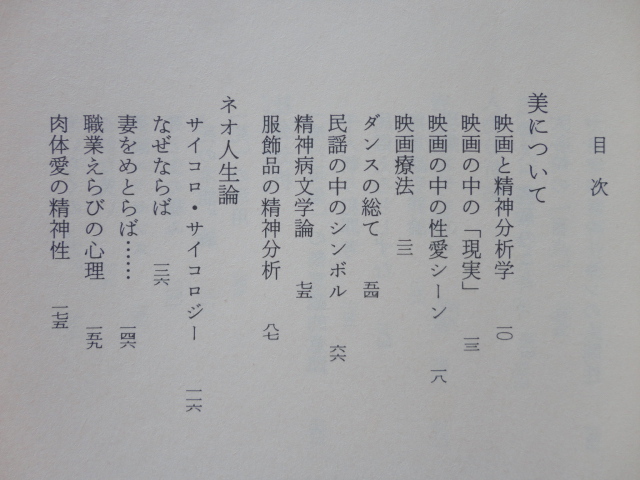 目次
美について
映画と精神分析学 一〇
映画の中の「現実」 一三
映画の中の性愛シーン 一八
映画療法 三一
ダンスの総て 五四
民謡の中のシンボル 六六
精神病文学論 七五
服飾品の精神分析 八七
ネオ人生論
サイコロ・サイコロジー 一一六
なぜならば 一三六
妻をめとらば…… 一四六
職業えらびの心理 一五九
肉体愛の精神性 一七五